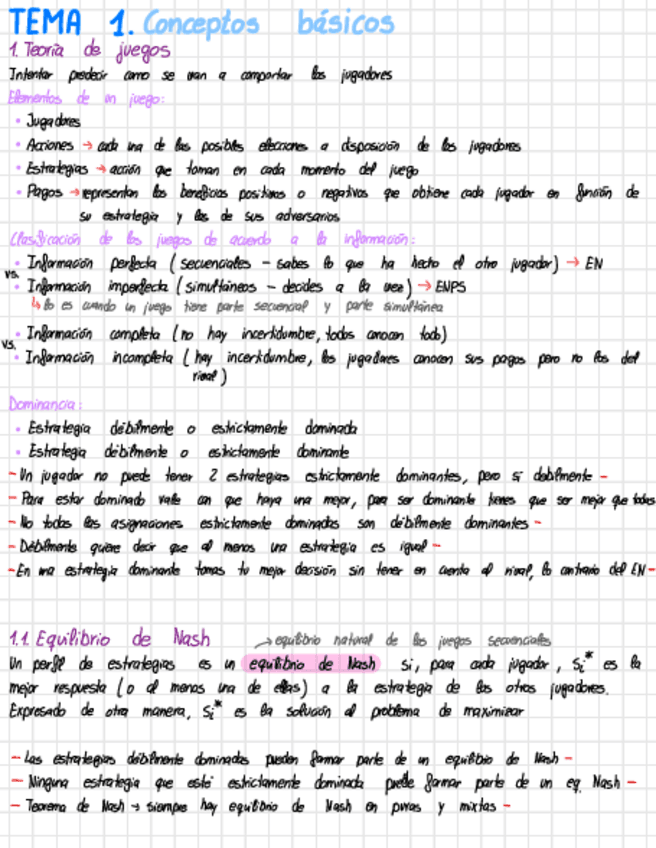 TEMA 1. Conceptos básicos
1. Teoría de juegos
Intentar predecir como se van a comportar los jugadores
Elementos de un juego:
• Jugadores
• Acciones → cada una de las posibles elecciones a disposición de los jugadores
• Estrategias → acción que toman en cada momento del juego
• Pagos → representan los beneficios positivos o negativos que obtiene cada jugador en función de
su estrategia y los de sus adversarios
Clasificación de los juegos de acuerdo a la información:
• Información perfecta (secuenciales - sabes lo que ha hecho el otro jugador) → EN
vs.
• Información imperfecta (simultáneos - decides a la vez) → ENPS
↳ lo es cuando un juego tiene parte secuencial y parte simultánea
• Información completa (no hay incertidumbre, todos conocen todo)
vs.
• Información incompleta (hay incertidumbre, los jugadores conocen sus pagos pero no los del
rival)
Dominancia:
• Estrategia débilmente o estrictamente dominada
• Estrategia débilmente o estrictamente dominante
- Un jugador no puede tener 2 estrategias estrictamente dominantes, pero sí débilmente -
- Para estar dominado vale con que haya una mejor, para ser dominante tienes que ser mejor que todas
- No todas las asignaciones estrictamente dominadas son débilmente dominantes -
- Débilmente quiere decir que al menos una estrategia es igual -
- En una estrategia dominante tomas tu mejor decisión sin tener en cuenta al rival, lo contrario del EN -
1.1. Equilibrio de Nash → equilibrio natural de los juegos secuenciales
Un perfil de estrategias es un equilibrio de Nash si, para cada jugador, Si* es la
mejor respuesta (o al menos una de ellas) a la estrategia de los otros jugadores.
Expresado de otra manera, Si* es la solución al problema de maximizar
- Las estrategias débilmente dominadas pueden formar parte de un equilibrio de Nash -
- Ninguna estrategia que esté estrictamente dominada puede formar parte de un eq. Nash -
- Teorema de Nash → siempre hay equilibrio de Nash en puras y mixtas -